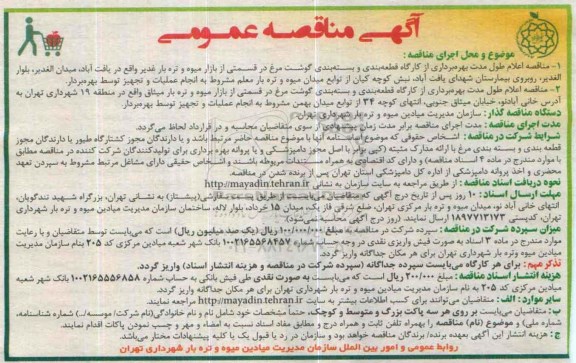 آگهی مناقصه عمومی
موضوع و محل اجرای مناقصه :
۱- مناقصه اعلام طول مدت بهره‌برداری از کارگاه قطعه‌بندی و بسته‌بندی گوشت مرغ در قسمتی از بازار میوه و تره بار غدیر واقع در یافت آباد، میدان الغدیر، بلوار
الغدیر، روبروی بیمارستان شهدای یافت آباد، نبش کوچه کیان از توابع میدان میوه و تره بار معلم مشروط به انجام عملیات و تجهیز توسط بهره‌بردار.
۲- مناقصه اعلام طول مدت بهره‌برداری از کارگاه قطعه‌بندی و بسته‌بندی گوشت مرغ در قسمتی از بازار میوه و تره بار میثاق واقع در منطقه ۱۹ شهرداری تهران به
آدرس خانی آبادنو، خیابان میثاق جنوبی، انتهای کوچه ۳۴ از توابع میدان بهمن مشروط به انجام عملیات و تجهیز توسط بهره‌بردار.
دستگاه مناقصه گذار : سازمان مدیریت میادین میوه و تره بار شهرداری تهران
مدت اجرای مناقصه : مدت اجرای مناقصه برابر مدت زمان پیشنهادی از سوی متقاضیان محاسبه و در قرارداد لحاظ می‌گردد.
شرایط شرکت در مناقصه : اشخاص حقوقی که موضوع اساسنامه آنها با موضوع مناقصه حاضر مرتبط باشد و یا دارندگان مجوز کشتارگاه طیور یا دارندگان مجوز
قطعه بندی و بسته بندی مرغ با ارائه مدارک مثبته (کپی برابر با اصل مجوز دامپزشکی و یا پروانه بهره برداری برای تولیدکنندگان شرکت کننده در مناقصه مطابق
با موارد مندرج در ماده ۴ اسناد مناقصه) و دارای کد اقتصادی به همراه مستندات مربوطه باشند و اشخاص حقیقی دارای مشاغل مرتبط مشروط به سپردن تعهد
محضری و اخذ پروانه دامپزشکی از اداره کل دامپزشکی استان تهران پس از برنده شدن در مناقصه.
نحوه دریافت اسناد مناقصه : از طریق مراجعه به سایت سازمان به نشانی http://mayadin.tehran.ir
مهلت ارسال اسناد : ۱۰ روز پس از تاریخ درج آگهی که متقاضیان می‌بایست از طریق پست سفارشی(پیشتاز) به نشانی تهران، بزرگراه شهید تندگویان،
انتهای خانی آباد نو، میدان میوه و تره بار مرکزی تهران، ضلع شرقی فاز یک، میدان ۱۵ خرداد، بلوار لاله، ساختمان سازمان مدیریت میادین میوه و تره بار شهرداری
تهران، کدپستی ۱۸۹۷۷۱۳۱۷۳ ارسال نمایند. (روز درج آگهی محاسبه نمی‌شود)
میزان سپرده شرکت در مناقصه : سپرده شرکت در مناقصه به مبلغ ۱۰۰/۰۰۰/۰۰۰ ریال (یک صد میلیون ریال) است که می‌بایست توسط متقاضیان و با رعایت
موارد مندرج در ماده ۳ اسناد به صورت فیش واریزی نقدی در وجه حساب شماره ۱۰۰۲۱۶۵۵۶۸۴۵۷ بانک شهر شعبه میادین مرکزی کد ۲۰۵ بنام سازمان مدیریت
میادین میوه وتره بار شهرداری تهران برای هر مکان جداگانه واریز گردد.
تذکر مهم : برای هر کارگاه می‌بایست سپرده جداگانه (سپرده شرکت در مناقصه و هزینه انتشار اسناد) واریز گردد.
هزینه انتشار اسناد مناقصه : مبلغ ۲۰۰/۰۰۰ ریال است که می‌بایست به صورت نقدی طی فیش بانکی به حساب شماره ۱۰۰۲۱۶۵۵۵۶۸۵۸ بانک شهر شعبه
میادین مرکزی کد ۲۰۵ به نام سازمان مدیریت میادین میوه و تره بار شهرداری تهران برای هر مکان جداگانه واریز گردد.
سایر موارد : الف : متقاضیان می‌توانند برای کسب اطلاعات بیشتر به سایت http://mayadin.tehran.ir مراجعه نمایند.
ب: متقاضیان می‌بایست بر روی هر سه پاکت بزرگ و متوسط و کوچک، حتماً مشخصات خود شامل نام و نام خانوادگی(نام شرکت/ موسسه/..) شماره شناسنامه،
شماره ملی) و موضوع (نام) مناقصه را بهمراه تلفن ثابت و همراه درج و مطابق مفاد اسناد نسبت به امضاء و مهر و چسب نمودن پاکات اقدام نمایند.
ج: هزینه انتشار این آگهی بعهده برنده/ برندگان مناقصه خواهد بود و سازمان در رد یا قبول یک یا کلیه پیشنهادات مختار می‌باشد.
روابط عمومی و امور بین الملل سازمان مدیریت میادین میوه و تره بار شهرداری تهران